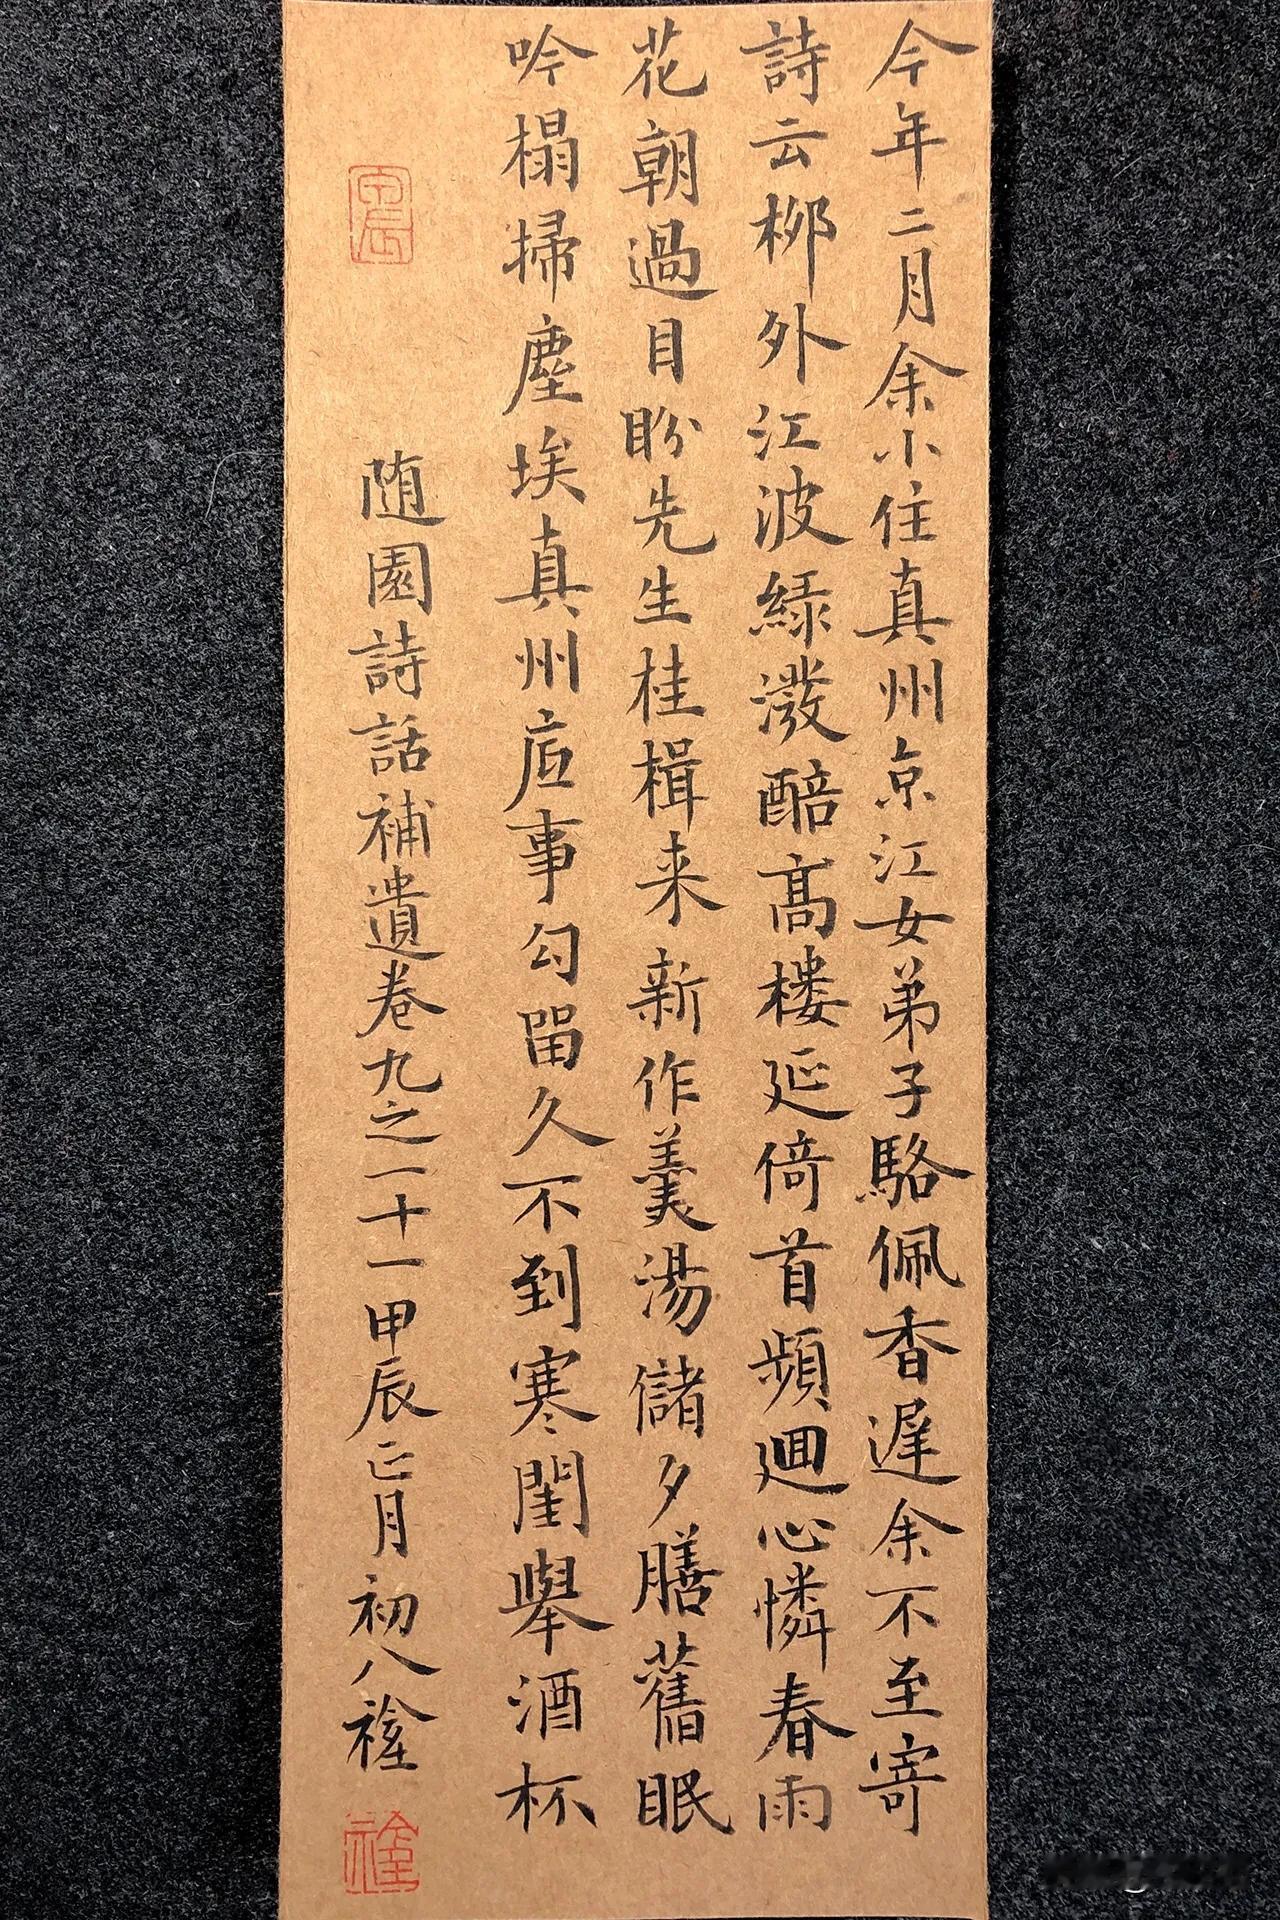 今年二月余小住真州京江女弟子駱佩香遲余不至寄
詩云柳外江波緑潑醅高樓延倚首頻廻心憐春雨
花朝過目盼先生桂楫来新作羹湯儲夕膳舊眠
吟榻掃塵埃真州底事勾留久不到寒閨舉酒杯
随園詩話補遺卷九之二十一甲辰正月初八
甲辰